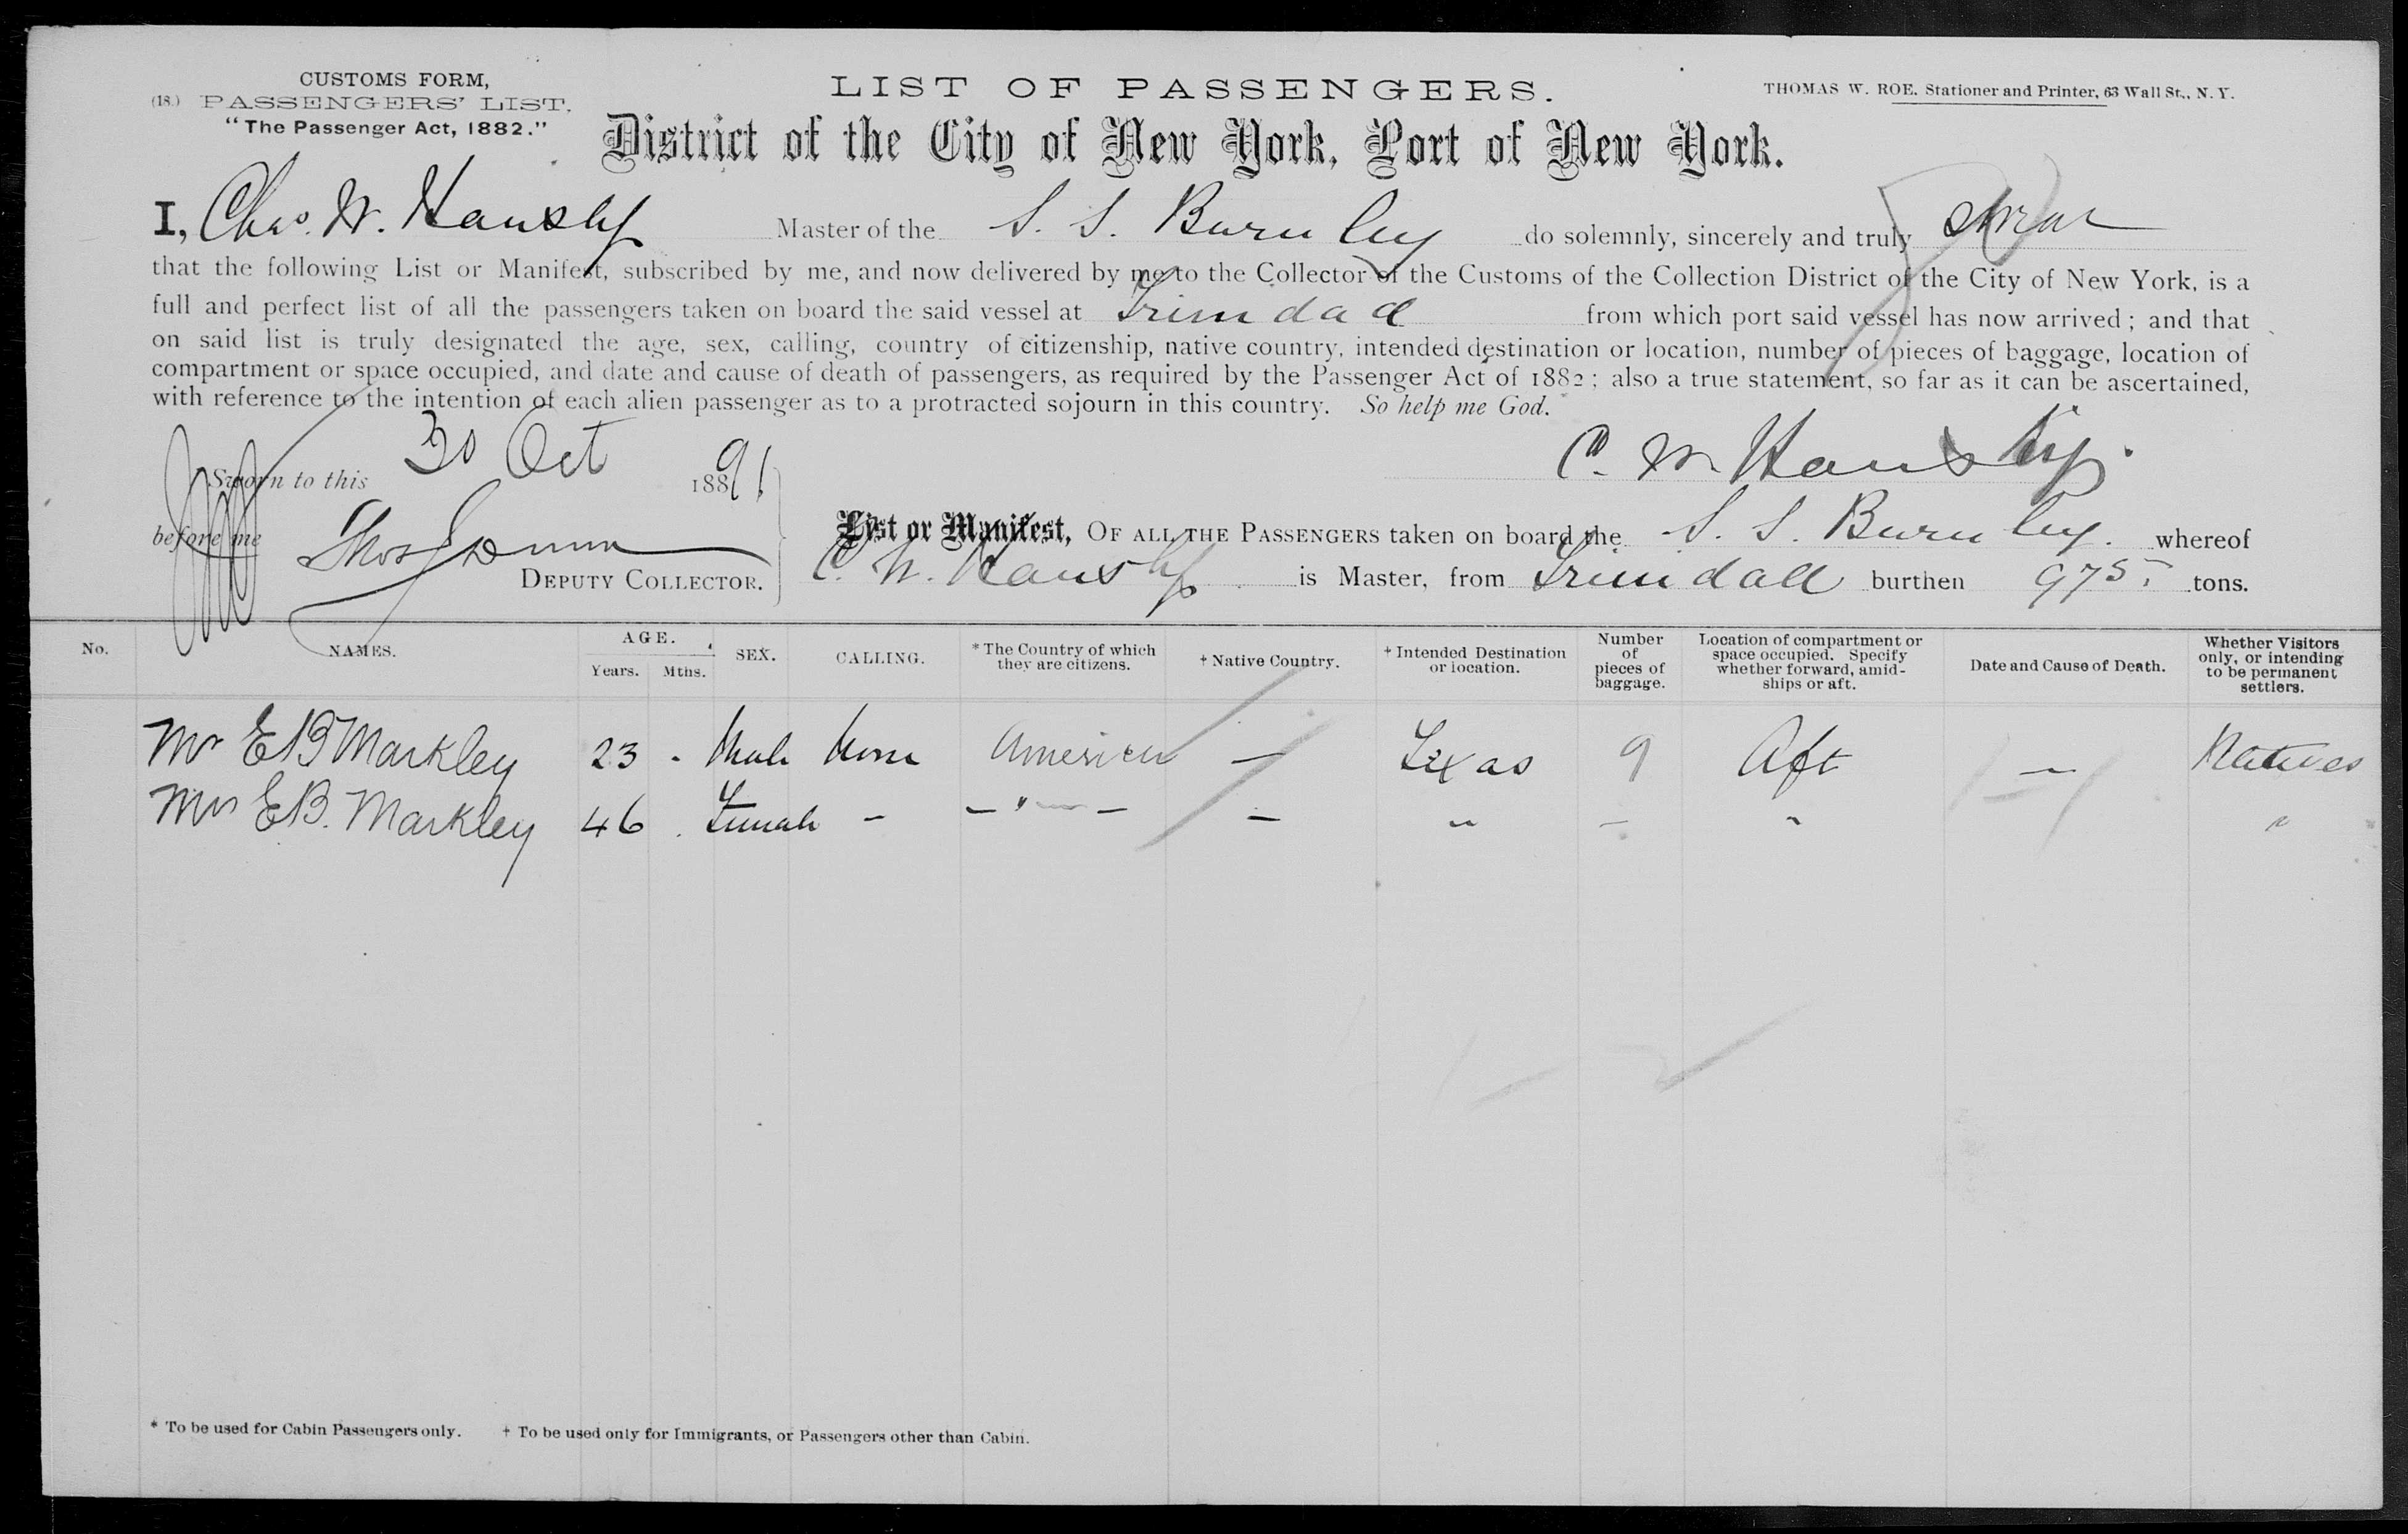 CUSTOMS FORM,
(18.) PASSENGERS' LIST.
"The Passenger Act, 1882."
LIST OF PASSENGERS.
THOMAS W. ROE, Stationer and Printer, 63 Wall St., N. Y.
District of the City of New York, Port of New York.
I, Chas. W. Master of the S. S. Burnley do solemnly, sincerely and truly swear
that the following List or Manifest, subscribed by me, and now delivered by me to the Collector of the Customs of the Collection District of the City of New York, is a
full and perfect list of all the passengers taken on board the said vessel at Trindad from which port said vessel has now arrived; and that
on said list is truly designated the age, sex, calling, country of citizenship, native country, intended destination or location, number of pieces of baggage, location of
compartment or space occupied, and date and cause of death of passengers, as required by the Passenger Act of 1882; also a true statement, so far as it can be ascertained,
with reference to the intention of each alien passenger as to a protracted sojourn in this country. So help me God.
C. W.
Sworn to this 30 Oct 1891
before me Thos
DEPUTY COLLECTOR.
List or Manifest, OF ALL THE PASSENGERS taken on board the S. S. Burnley. whereof
C. W. is Master, from burthen 975 tons.
No. NAMES. AGE. Years. Mths. SEX. CALLING. * The Country of which they are citizens. † Native Country. † Intended Destination or location. Number of pieces of baggage. Location of compartment or space occupied. Specify whether forward, amidships or aft. Date and Cause of Death. Whether Visitors only, or intending to be permanent settlers.
Mr E B Markley 23 - Male None America — Texas 9 Aft — Natives
Mrs E B. Markley 46 . Female - — " — — " — " "
* To be used for Cabin Passengers only. † To be used only for Immigrants, or Passengers other than Cabin.